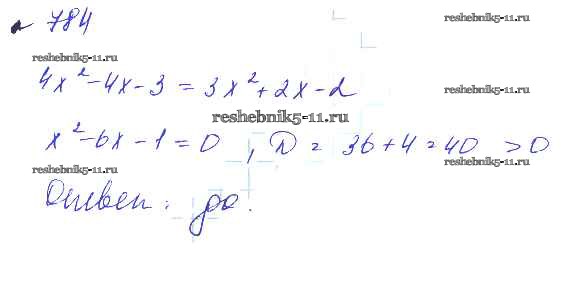 № 784
reshebnik5-11.ru
reshebnik5-11.ru
4x² - 4x - 3 = 3x² + 2x - 2
reshebnik5-11.ru
reshebnik5-11.ru
x² - 6x - 1 = 0, D = 36 + 4 = 40 > 0
reshebnik5-11.ru
reshebnik5-11.ru
Ответ: да.